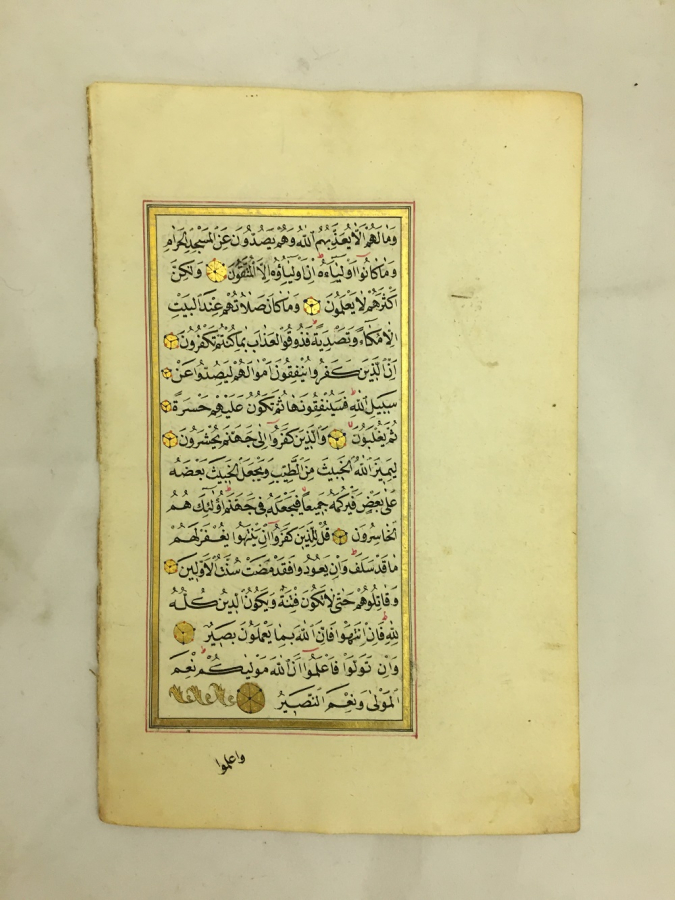 وَمَا لَهُمْ اَلَّا يُعَذِّبَهُمُ اللّٰهُ وَهُمْ يَصُدُّونَ عَنِ الْمَسْجِدِ الْحَرَامِ
وَمَا كَانُوا اَوْلِيَآءَهُ اِنْ اَوْلِيَاؤُهُ اِلَّا الْمُتَّقُونَ وَلٰكِنَّ
اَكْثَرَهُمْ لَا يَعْلَمُونَ وَمَا كَانَ صَلَاتُهُمْ عِنْدَ الْبَيْتِ
اِلَّا مُكَآءً وَتَصْدِيَةً فَذُوقُوا الْعَذَابَ بِمَا كُنْتُمْ تَكْفُرُونَ
اِنَّ الَّذِينَ كَفَرُوا يُنْفِقُونَ اَمْوَالَهُمْ لِيَصُدُّوا عَنْ
سَبِيلِ اللّٰهِ فَسَيُنْفِقُونَهَا ثُمَّ تَكُونُ عَلَيْهِمْ حَسْرَةً
ثُمَّ يُغْلَبُونَ وَالَّذِينَ كَفَرُوٓا اِلٰى جَهَنَّمَ يُحْشَرُونَ
لِيَمِيزَ اللّٰهُ الْخَبِيثَ مِنَ الطَّيِّبِ وَيَجْعَلَ الْخَبِيثَ بَعْضَهُ
عَلٰى بَعْضٍ فَيَرْكُمَهُ جَمِيعًا فَيَجْعَلَهُ فِى جَهَنَّمَ اُولٰٓئِكَ هُمُ
الْخَاسِرُونَ قُلْ لِلَّذِينَ كَفَرُوٓا اِنْ يَنْتَهُوا يُغْفَرْ لَهُمْ
مَا قَدْ سَلَفَ وَاِنْ يَعُودُوا فَقَدْ مَضَتْ سُنَّتُ الْاَوَّلِينَ
وَقَاتِلُوهُمْ حَتّٰى لَا تَكُونَ فِتْنَةٌ وَيَكُونَ الدِّينُ كُلُّهُ
لِلّٰهِ فَاِنِ انْتَهَوْا فَاِنَّ اللّٰهَ بِمَا يَعْمَلُونَ بَصِيرٌ
وَاِنْ تَوَلَّوْا فَاعْلَمُوٓا اَنَّ اللّٰهَ مَوْلٰيكُمْ نِعْمَ
الْمَوْلٰى وَنِعْمَ النَّصِيرُ
واعلموا